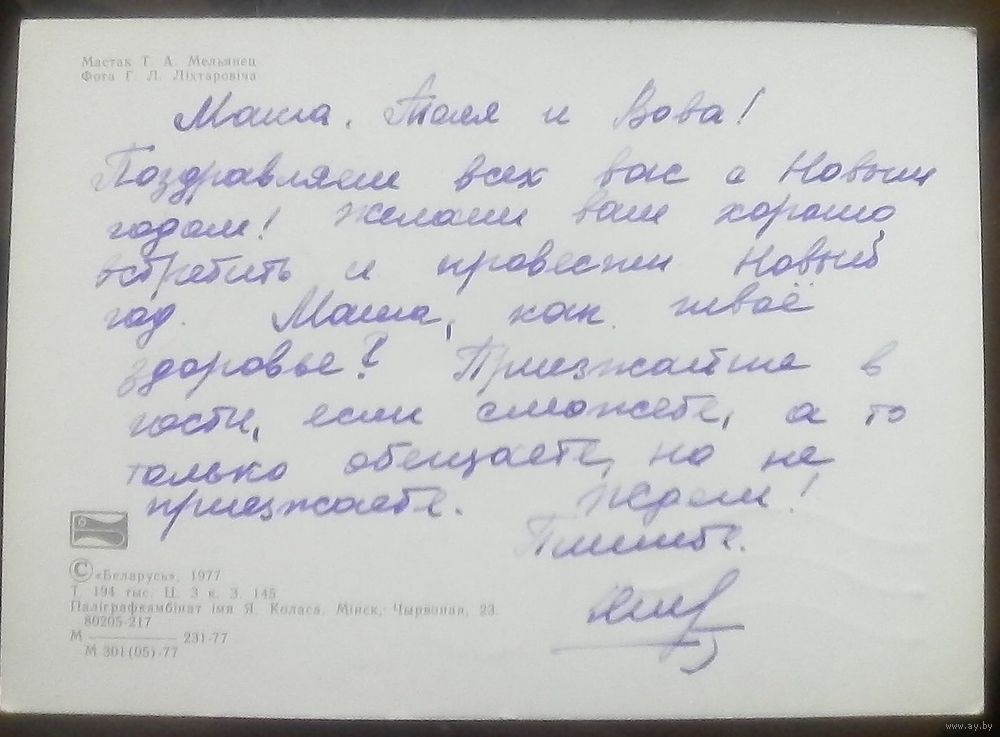 Мастак Т. А. Мельянец
Фота Г. Л. Ліхтаровіча
Маша, Толя и Вова!
Поздравляем всех вас с Новым
годом! Желаем вам хорошо
встретить и провести Новый
год. Маша, как твоё
здоровье? Приезжайте в
гости, если сможете, а то
только обещаете, но не
приезжаете. Ждем!
Пишите.
©«Беларусь», 1977
Т. 194 тыс. Ц. 3 к. З. 145
Паліграфкамбінат імя Я. Коласа. Мінск, Чырвоная, 23.
80205-217
М ———— 231-77
М 301(05)-77
www.ay.by